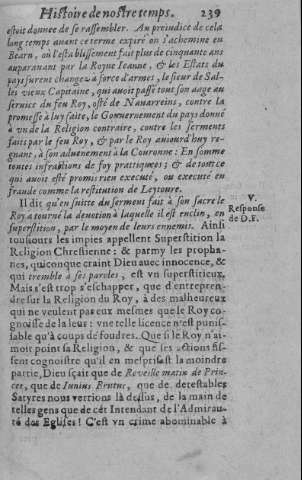 Histoire de nostre temps. 239
estoit donnee de se rassembler. Au preiudice de cela
long temps auant ce terme expiré on s'achemine en
Bearn, où l'establissement fait plus de cinquante ans
auparauant par la Royne Ieanne, & les Estats du
pays furent changez à force d'armes, le sieur de Sal-
les vieux Capitaine, qui auoit passé tout son aage au
seruice du feu Roy, osté de Nauarreins, contre la
promesse à luy faite, le Gouuernement du pays donné
à vn de la Religion contraire, contre les serments
faits par le feu Roy, & par le Roy auiourd'huy re-
gnant, à son aduenement à la Couronne: En somme
toutes infractions de foy prattiquees; & de tout ce
qui auoit esté promis rien executé, ou executé en
fraude comme la restitution de Leytoure.
Il dit qu'en suitte du serment fait à son sacre le
Roy a tourné la deuotion à laquelle il est enclin, en
superstition, par le moyen de leurs ennemis. Ainsi
tousiours les impies appellent Superstition la
Religion Chrestienne; & parmy les propha-
nes, quiconque craint Dieu auec innocence, &
qui tremble à ses paroles, est vn superstitieux.
Mais s'est trop s'eschapper, que d'entrepren-
dre sur la Religion du Roy, à des malheureux
qui ne veulent pas eux mesmes que le Roy co-
gnoisse de la leur: vne telle licence n'est punis-
sable qu'à coups de foudres. Que si le Roy n'ai-
moit point sa Religion, & que ses actions fis-
sent cognoistre qu'il en mesprisast la moindre
partie, Dieu sçait que de Reveille matin de Prin-
ces, que de Iunius Brutus, que de detestables
Satyres nous verrions là dessus, de la main de
telles gens que de cét Intendant de l'Admirau-
té des Eglises! C'est vn crime abominable à
V.
Response
de D.F.